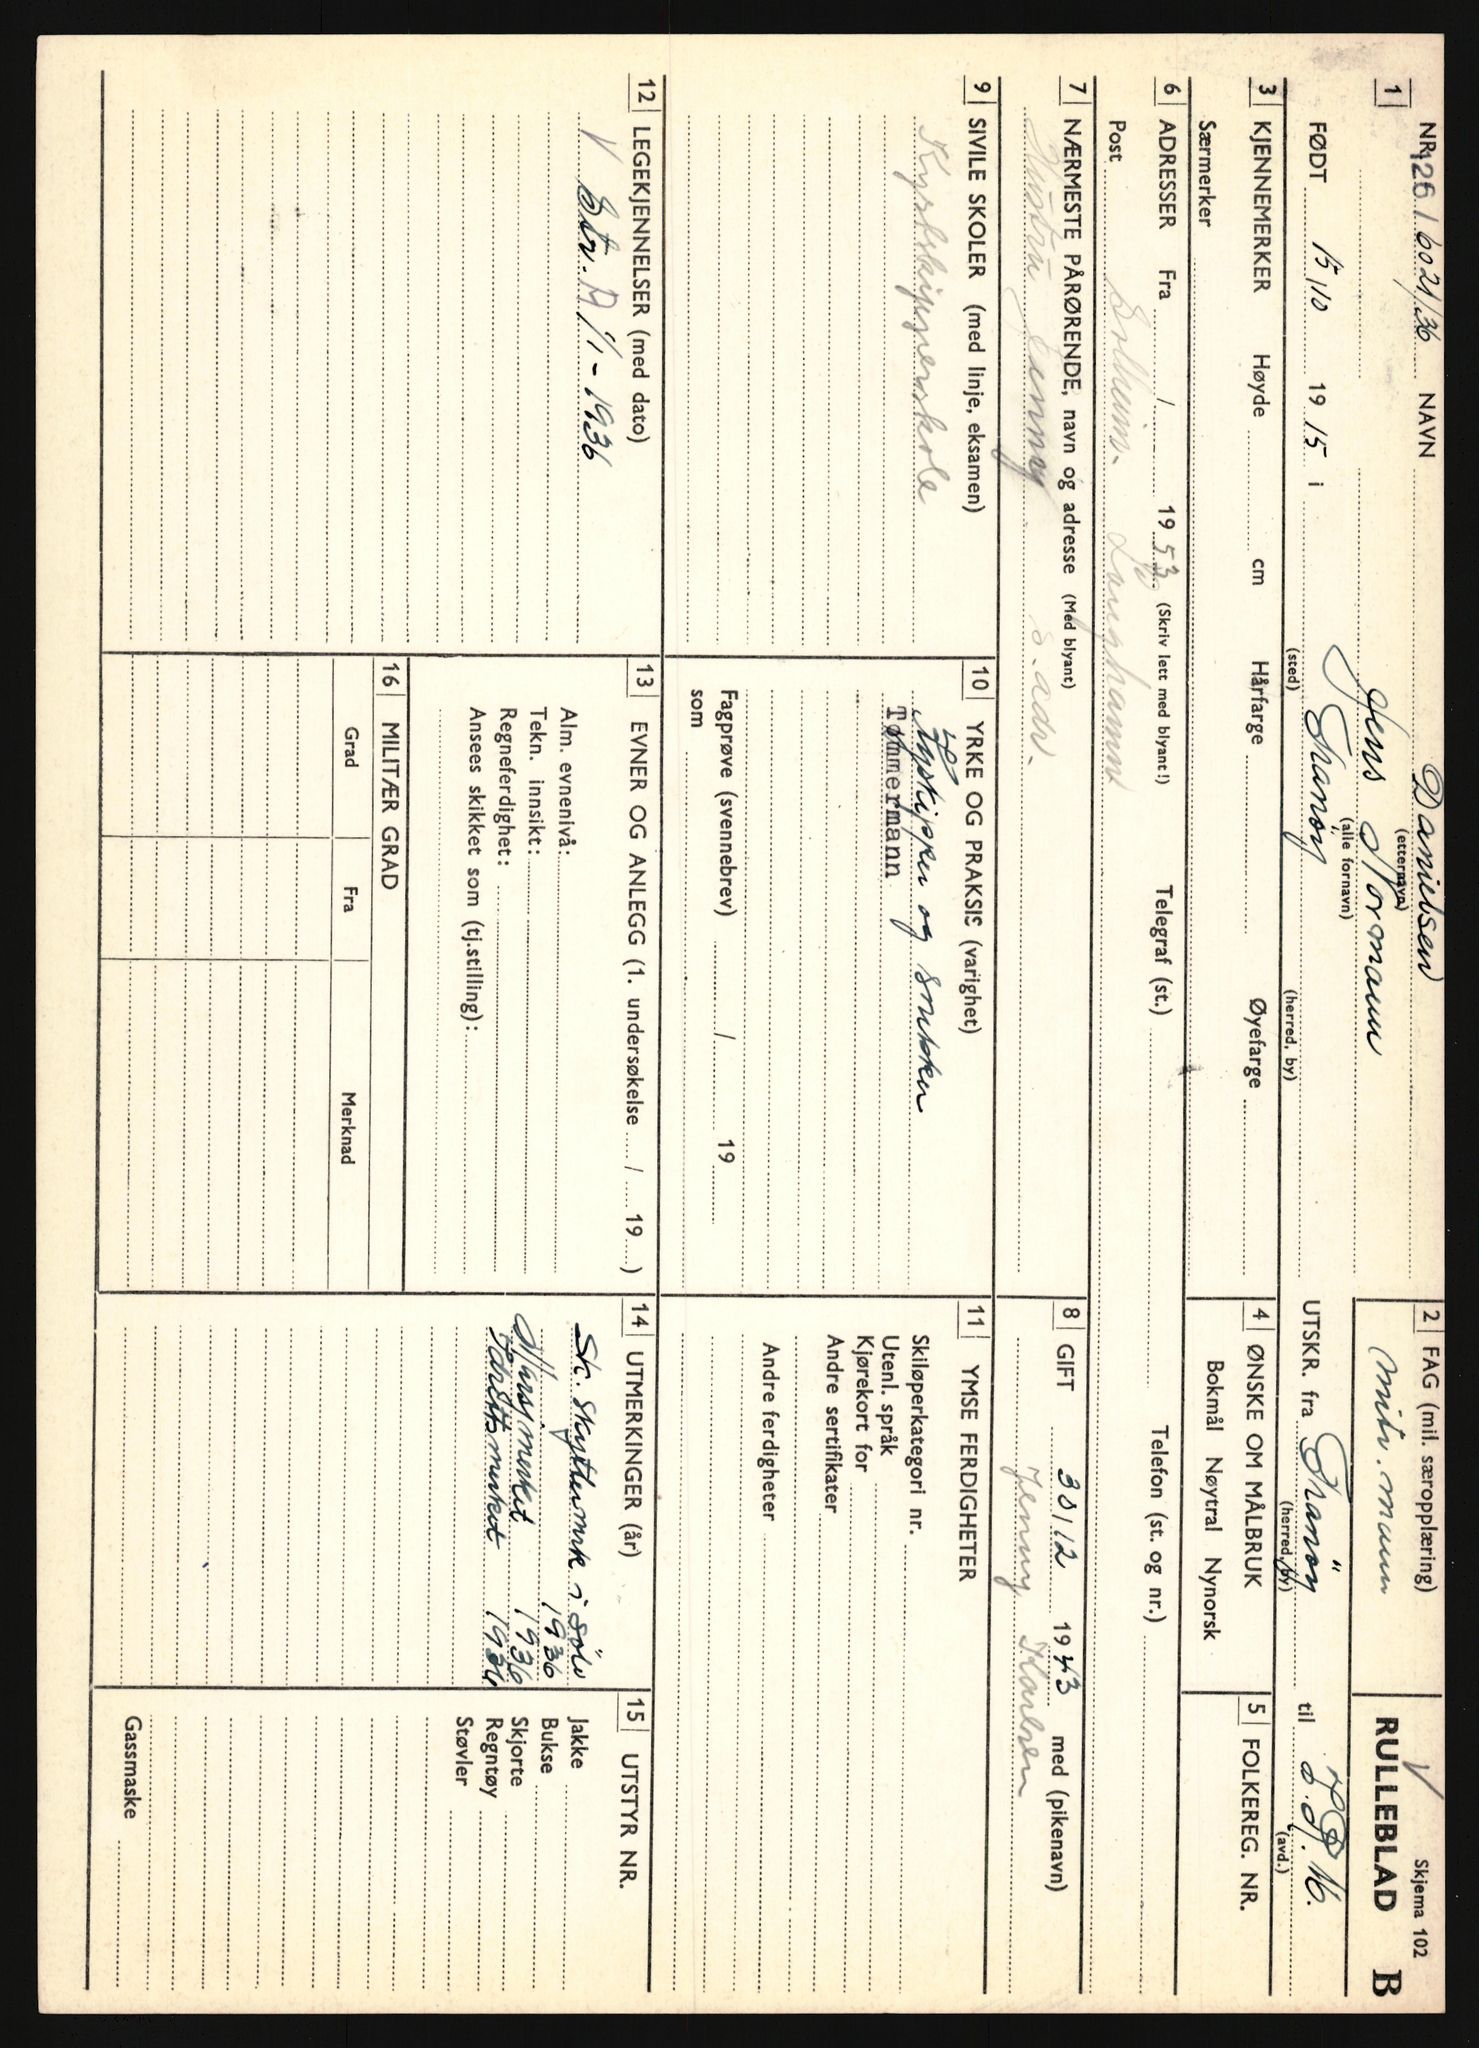 NR. 1261/6021/36 NAVN Danielsen
(etternavn)
Jens Normann
(alle fornavn)
1
FØDT 15/10 1915 i Tranøy
(sted) (herred, by)
2 FAG (mil. særopplæring)
mitr. mann
Skjema 102
RULLEBLAD B
UTSKR. fra Tranøy til I.R. 16.
(herred, by) (avd.)
3 KJENNEMERKER Høyde cm Hårfarge Øyefarge
Særmerker
4 ØNSKE OM MÅLBRUK
Bokmål Nøytral Nynorsk
5 FOLKEREG. NR.
6 ADRESSER Fra / 1953 (Skriv lett med blyant!) Telegraf (st.) Telefon (st. og nr.)
Post Solheim. Langhamn
7 NÆRMESTE PÅRØRENDE, navn og adresse (Med blyant)
Hustru Jenny s. adr.
8 GIFT 30/12 1943 med (pikenavn)
Jenny Karlsen
9 SIVILE SKOLER (med linje, eksamen)
Kystskipperskole
10 YRKE OG PRAKSIS (varighet)
Kystskipper og snekker
Tømmermann
Fagprøve (svennebrev) / 19
som
11 YMSE FERDIGHETER
Skiløperkategori nr.
Utenl. språk
Kjørekort for
Andre sertifikater
Andre ferdigheter
12 LEGEKJENNELSER (med dato)
V Str. A 1/1-1936
13 EVNER OG ANLEGG (1. undersøkelse / 19 )
Alm. evnenivå:
Tekn. innsikt:
Regneferdighet:
Ansees skikket som (tj.stilling):
14 UTMERKINGER (år)
Sk. skyttermrk i sølv
1936
Marsjmerket 1936
Idrettsmerket 1936
15 UTSTYR NR.
Jakke
Bukse
Skjorte
Regntøy
Støvler
Gassmaske
16 MILITÆR GRAD
Grad Fra Merknad